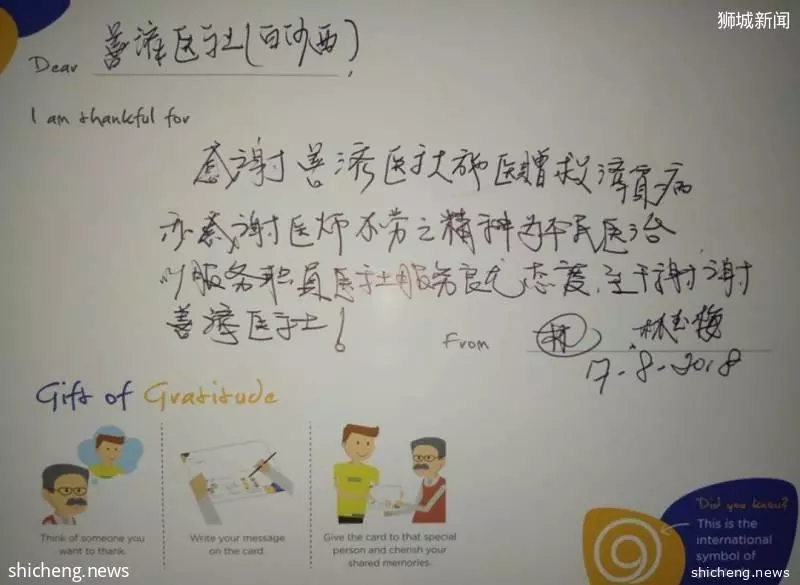 狮城新闻
Dear 善济医社(白沙西),
I am thankful for
感谢善济医社施医赠救济贫病
亦感谢医师不劳之精神为平民医治
以服务职员医社服务良尤态度.至于谢谢
善济医社!
From 林 林玉梅
17-8-2018
Gift of Gratitude
Think of someone you
want to thank.
Write your message
on the card.
Give the card to that special
person and cherish your
shared memories.
Did you know?
This is the
international
symbol of
shicheng.news
shicheng.news